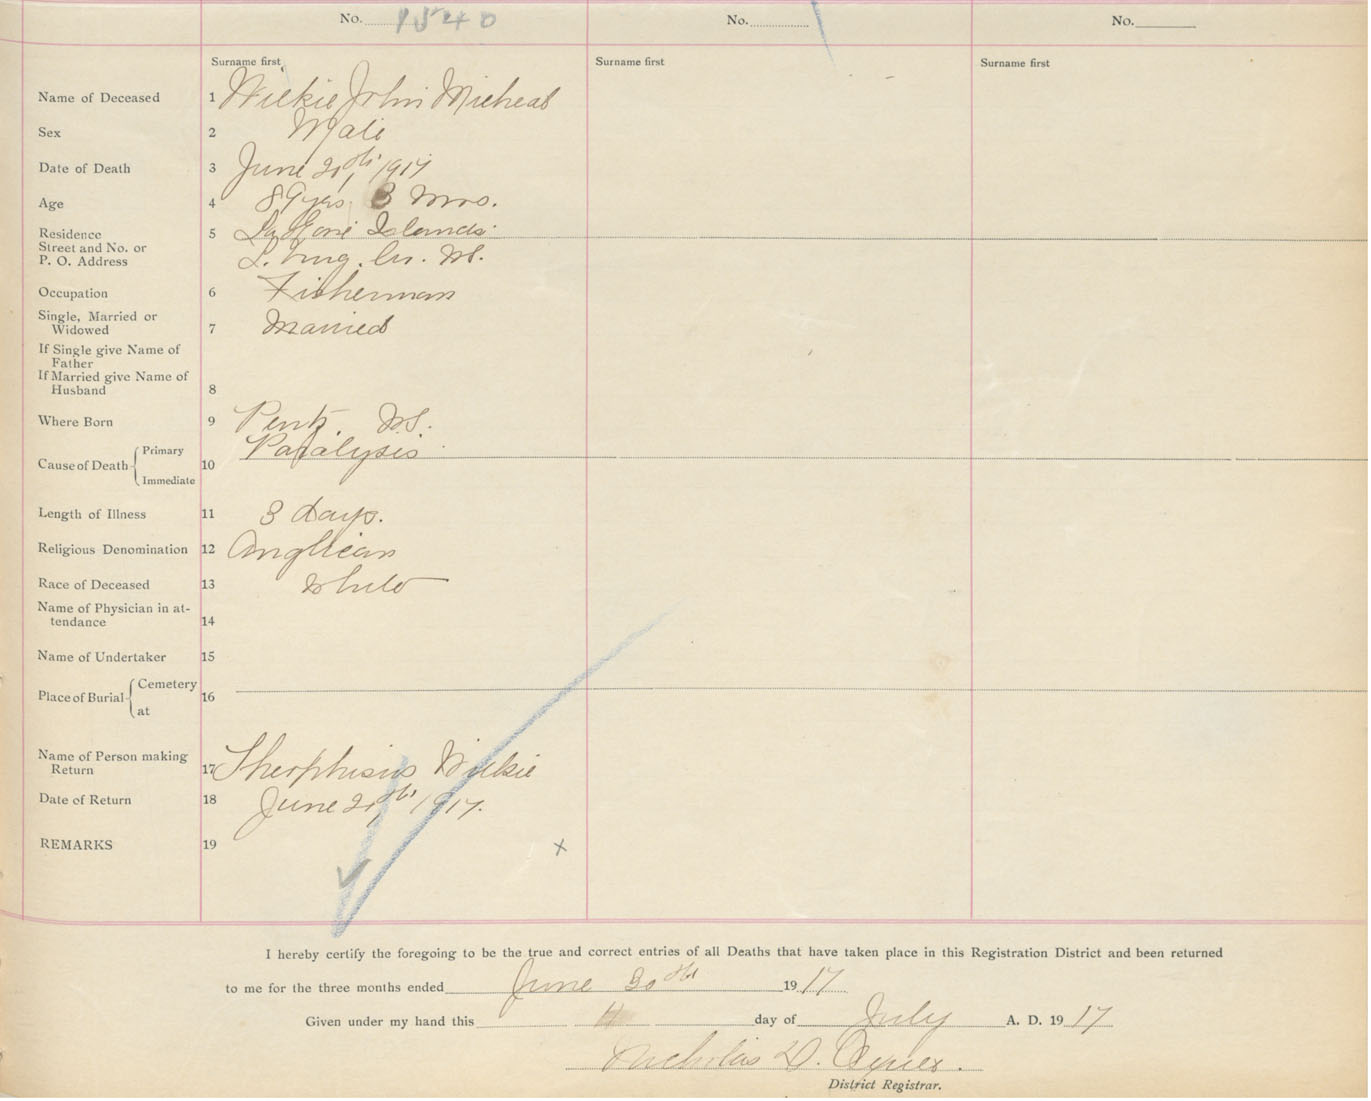 No. 1540 No. No.
Surname first Surname first Surname first
Name of Deceased 1 Wilkie John Micheal
Sex 2 Male
Date of Death 3 June 21th 1917
Age 4 89 yrs 3 mos.
Residence 5 Islands
Street and No. or
P. O. Address
Occupation 6 Fisherman
Single, Married or
Widowed 7 Married
If Single give Name of
Father
If Married give Name of
Husband 8
Where Born 9 Pentz NS.
Cause of Death Primary 10 Paralysis
Immediate
Length of Illness 11 3 days.
Religious Denomination 12 Anglican
Race of Deceased 13 White
Name of Physician in at-
tendance 14
Name of Undertaker 15
Place of Burial Cemetery 16
at
Name of Person making
Return 17 Wilkie
Date of Return 18 June 21th 1917.
REMARKS 19 x
I hereby certify the foregoing to be the true and correct entries of all Deaths that have taken place in this Registration District and been returned
to me for the three months ended June 30th 1917
Given under my hand this 4 day of July A. D. 1917
Nicholas D.
District Registrar.